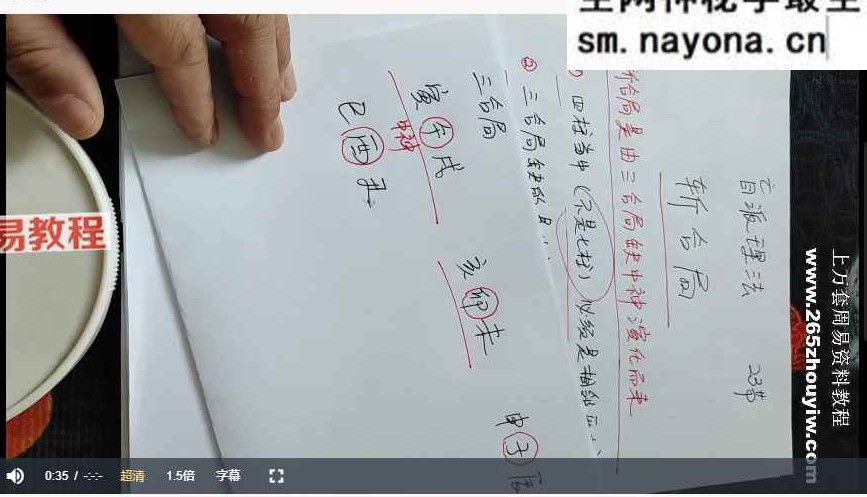 全网神秘学最全
sm.nayona.cn
盲派理法 23节
斩合局
斩合局是由三合局缺中神演化而来
① 四柱当中(不是七柱)必须是相邻
② 三合局缺的是
三合局
寅午戌 亥卯未 申子辰
中神
巳酉丑
易教程
上万套周易资料教程
www.265zhouyiw.com
0:35 / -:-:-
超清
1.5倍
字幕